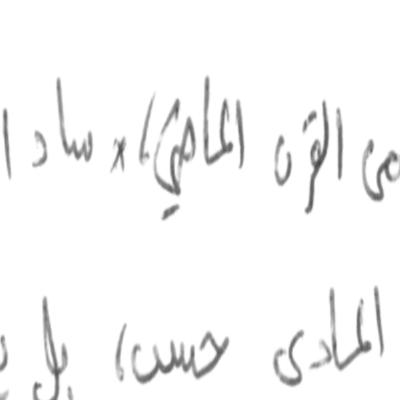 من القرن الماضي، × ساد ا
المادى حسب، بل ي